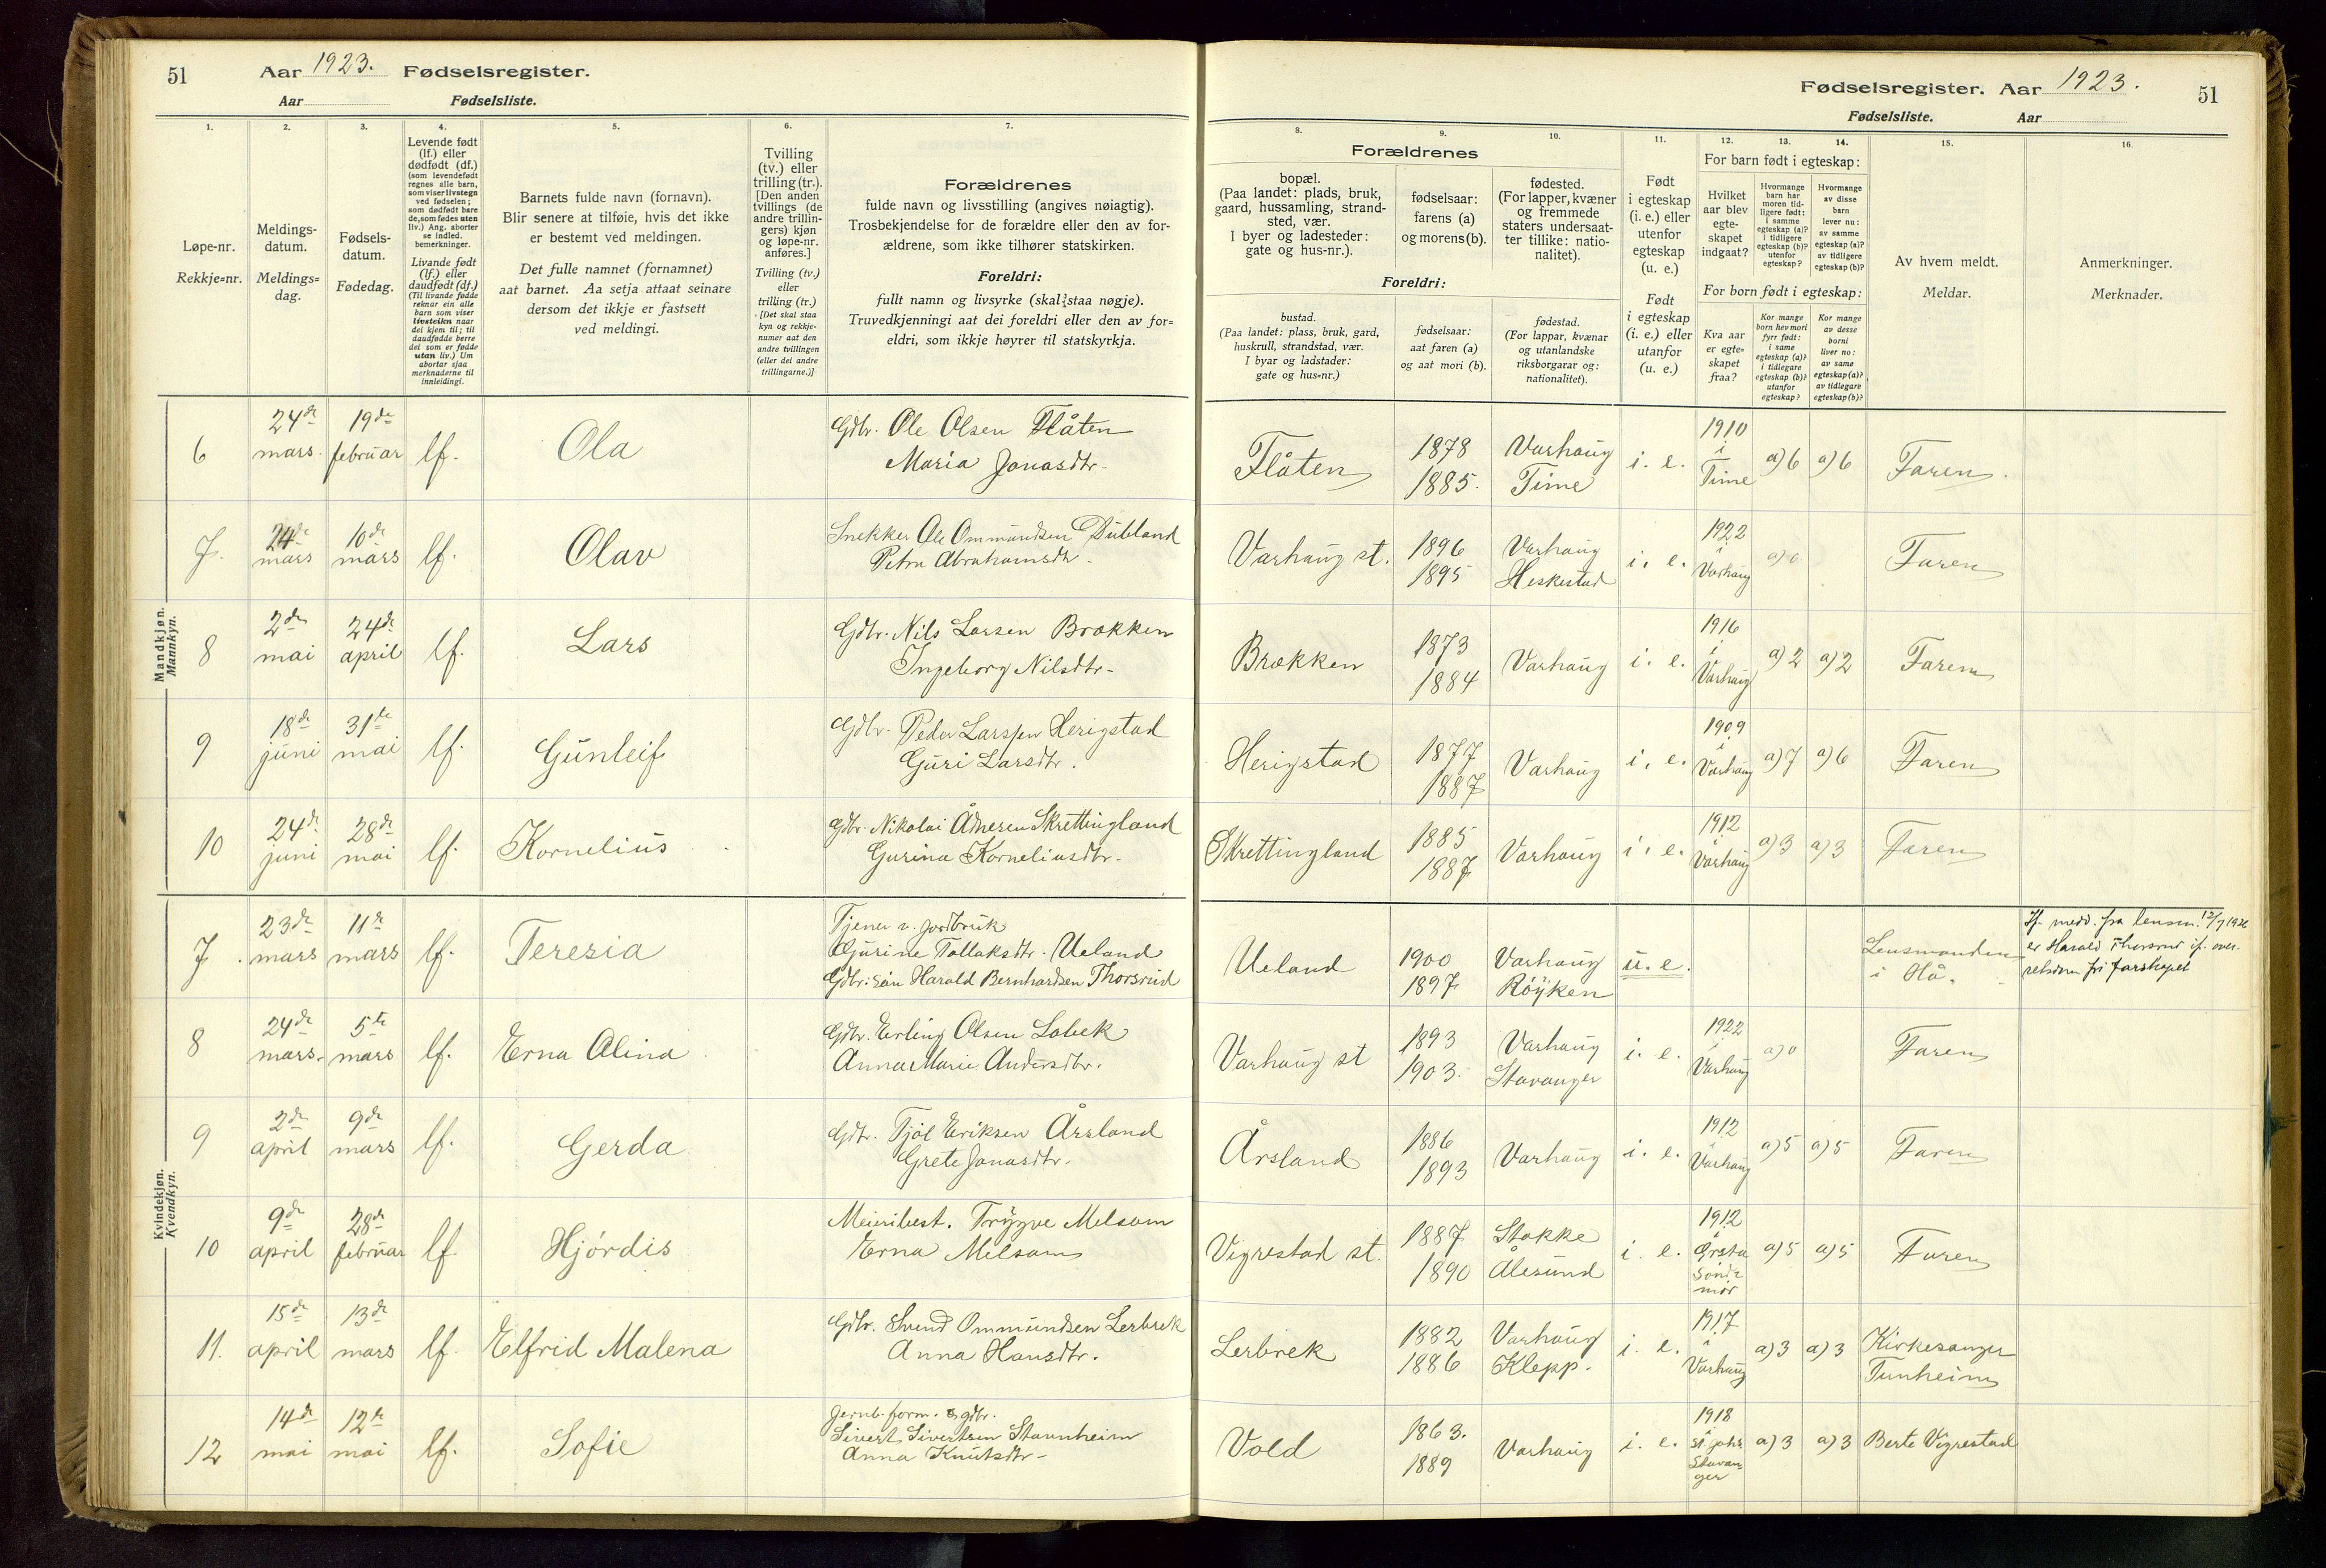 51
Aar 1923. Fødselsregister.
Aar Fødselsliste.
Fødselsregister. Aar 1923.
51
Fødselsliste. Aar
1.
Løpe-nr.
Rekkje=nr.
2.
Meldings-
datum.
Meldings=
dag.
3.
Fødsels-
datum.
Fødedag.
4.
Levende født
(lf.) eller
dødfødt (df.)
(som levendefødt
regnes alle barn,
som viser livstegn
ved fødselen;
som dødfødt bare
de, som fødes uten
liv.) Ang. aborter
se indled.
bemerkninger.
Livande født
(lf.) eller
daudfødt (df.)
(Til livande fødde
reknar ein alle
barn som viser
livsteikn naar
dei kjem til; til
daudfødde berre
dei som er fødde
utan liv.) Um
abortar sjaa
merknaderne til
innleidingi.
5.
Barnets fulde navn (fornavn).
Blir senere at tilføie, hvis det ikke
er bestemt ved meldingen.
Det fulle namnet (fornamnet)
aat barnet. Aa setja attaat seinare
dersom det ikkje er fastsett
ved meldingi.
6.
Tvilling
(tv.) eller
trilling (tr.).
[Den anden
tvillings (de
andre trillin-
gers) kjøn
og løpe-nr.
anføres.]
Tvilling (tv.)
eller
trilling (tr.)
[Det skal staa
kyn og rekkje-
numer aat den
andre tvillingen
(eller dei andre
trillingarne.)]
7.
Forældrenes
fulde navn og livsstilling (angives nøiagtig).
Trosbekjendelse for de forældre eller den av for-
ældrene, som ikke tilhører statskirken.
Foreldri:
fullt namn og livsyrke (skal staa nøgje).
Truvedkjenningi aat dei foreldri eller den av for=
eldri, som ikkje høyrer til statskyrkja.
Forældrenes
8.
bopæl.
(Paa landet: plads, bruk,
gaard, hussamling, strand-
sted, vær.
I byer og ladesteder:
gate og hus-nr.).
9.
fødselsaar:
farens (a)
og morens (b).
10.
fødested.
(For lapper, kvæner
og fremmede
staters undersaat-
ter tillike: natio-
nalitet).
Foreldri:
bustad.
(Paa landet: plass, bruk, gard,
huskrull, strandstad, vær.
I byar og ladstader:
gate og hus=nr.)
fødselsaar:
aat faren (a)
og aat mori (b).
fødestad.
(For lappar, kvænar
og utanlandske
riksborgarar og:
nationalitet).
11.
Født
i egteskap
(i. e.) eller
utenfor
egteskap
(u. e.)
Født
i egteskap
(i. e.) eller
utanfor
(u. e.)
12. 13. 14.
For barn født i egteskap:
Hvilket
aar blev
egte-
skapet
indgaat?
Hvormange
barn har
moren tid-
ligere født:
i samme
egteskap (a)?
i tidligere
egteskap (b)?
utenfor
egteskap?
Hvormange
av disse
barn
lever nu:
av samme
egteskap (a)?
av tidligere
egteskap (b)?
For born født i egteskap:
Kva aar
er egte=
skapet
fraa?
Kor mange
born hev mori
fyrr født:
i same
egteskap (a)?
i tidlegare
egteskap (b)?
utanfor
egteskap?
Kor mange
av desse
borni
liver no:
av same
egteskap (a)?
av tidlegare
egteskap (b)?
15.
Av hvem meldt.
Meldar.
16.
Anmerkninger.
Merknader.
Mandkjøn.
Mannkyn.
6 24de mars. 19de februar lf. Ola Gdbr. Ole Olsen Flåten
Maria Jonasdtr.
Flåten 1878 1885. Varhaug Time i. e. 1910 i Time a) 6 a) 6 Faren.
7. 24de mars 10de mars lf. Olav Snekker Ole Ommundsen Dubland
Petra Abrahamsdtr.
Varhaug st. 1896 1895 Varhaug Heskestad i. e. 1922 i Varhaug a) 0 Faren
8 2den mai 24de april lf. Lars Gdbr. Nils Larsen Brækken
Ingeborg Nilsdtr.
Brækken 1873 1884 Varhaug i. e. 1916 i Varhaug a) 2 a) 2 Faren
9 18de juni 31te mai lf. Gunleif Gdbr. Peder Larssen Herigstad
Guri Larsdtr.
Herigstad 1877 1887 Varhaug i. e. 1909 i Varhaug a) 7 a) 6 Faren
10 24de juni 28de mai lf. Kornelius Gdbr. Nikolai Ådnesen Skrettingland
Gurina Korneliusdtr.
Skrettingland 1885 1887 Varhaug i. e. 1912 i Varhaug a) 3 a) 3 Faren
Kvindekjøn.
Kvendkyn.
7. 23de mars 11te mars lf. Teresia Tjener v. jordbruk
Gurine Tollaksdtr. Ueland
Gdbr. søn Harald Bernhardsen Thorsrud
Ueland 1900 1897 Varhaug Röyken u. e. Lensmanden
i Hå.
If. medd. fra lensm. 12/7 1926
er Harald Thorsrud if. over-
retsdom fri farskapet
8 24de mars. 5te mars lf. Erna Alina Gdbr. Erling Olsen Lobek
Anna Marie Andersdtr.
Varhaug st 1893 1903. Varhaug Stavanger i. e. 1922 i Varhaug a) 0 Faren
9 2de april 9de mars lf. Gerda Gdbr. Tjöl Eriksen Årsland
Grete Jonasdtr.
Årsland 1886 1893 Varhaug i. e. 1912 i Varhaug a) 5 a) 5 Faren
10 9de april 28de februar lf. Hjördis Meieribest. Trygve Melsom
Erna Melsom
Vigrestad st. 1887 1890 Stokke Ålesund i. e. 1912 i Örsta Söndmör a) 5 a) 5 Faren
11. 15de april 13de mars lf. Elfrid Malena Gdbr. Svend Ommundsen Lerbrek
Anna Hansdtr.
Lerbrek 1882 1886 Varhaug Klepp. i. e. 1917 i Varhaug a) 3 a) 3 Kirkesanger
Tunheim
12 14de mai 12te mai lf. Sofie Jernb. form. & gdbr.
Sivert Sivertsen Stavnheim
Anna Knutsdtr.
Vold 1863. 1889 Varhaug i. e. 1918 St. Joh. Stavanger a) 3 a) 3 Berte Vigrestad